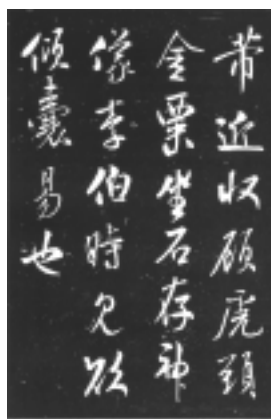 带近收顾虎頭
金粟坐石存神
像李伯時見欲
傾囊易也